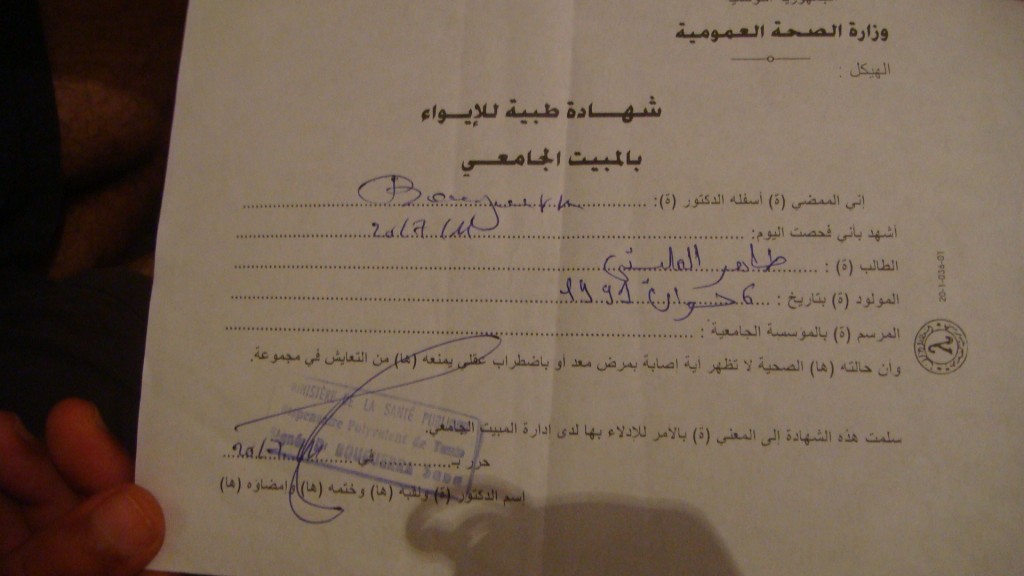 وزارة الصحة العمومية
الهيكل :
شهـــادة طبية للإيــواء
بالمبيت الجامعــي
إني الممضي (ة) أسفله الدكتور (ة):
أشهد بأني فحصت اليوم: 20/7/11
الطالب (ة) : طاهر
المولود (ة) بتاريخ : 6 جوان 1991
المرسم (ة) بالموسسة الجامعية :
وان حالته (ها) الصحية لا تظهر أية اصابة بمرض معد أو باضطراب عقلي يمنعه (ها) من التعايش في مجموعة.
سلمت هذه الشهادة إلى المعني (ة) بالامر للإدلاء بها لدى إدارة المبيت الجامعي.
حرر بـ في 20/7/11
اسم الدكتور (ة) ولقبه (ها) وختمه (ها) وإمضاؤه (ها)
MINISTÈRE DE LA SANTÉ PUBLIQUE
Dispensaire Polyvalent de Tunis
20-1-036-01